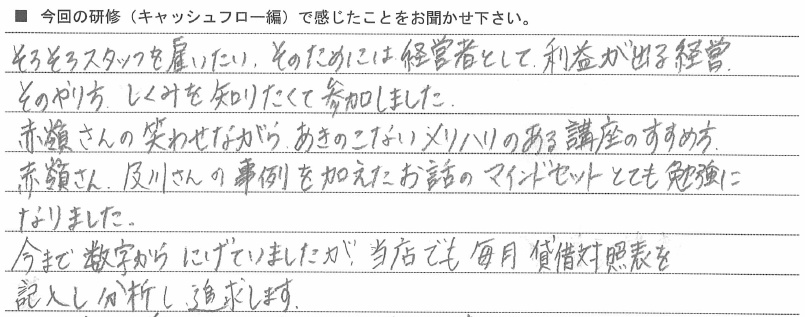 ■ 今回の研修（キャッシュフロー編）で感じたことをお聞かせ下さい。
そろそろスタッフを雇いたい、そのためには経営者として、利益が出る経営、
そのやり方、しくみを知りたくて参加しました。
赤嶺さんの笑わせながら、あきのこないメリハリのある講座のすすめ方、
赤嶺さん、及川さんの事例を加えたお話のマインドセットとても勉強に
なりました。
今まで数字からにげていましたが、当店でも毎月貸借対照表を
記入し分析し追求します。